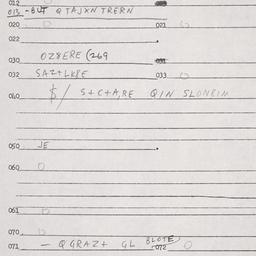 012
013 -BUT QTAJXN TRERN
020 021
022
030 OZ8ERE (269 031
032 SAZ+LKBE 033
040 $/ S+C+A,RE QIN SLONBIN
050 JE
060
061
070
071 - QGRAZ+ GL BLOTE 072